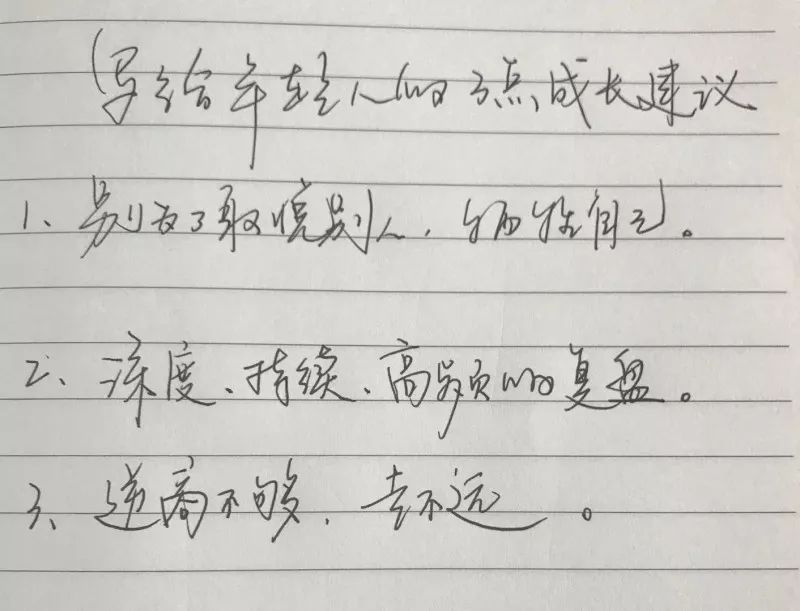 写给年轻人的3点成长建议
1、别为了取悦别人,牺牲自己。
2、深度、持续、高频的复盘。
3、逆商不够,走不远。